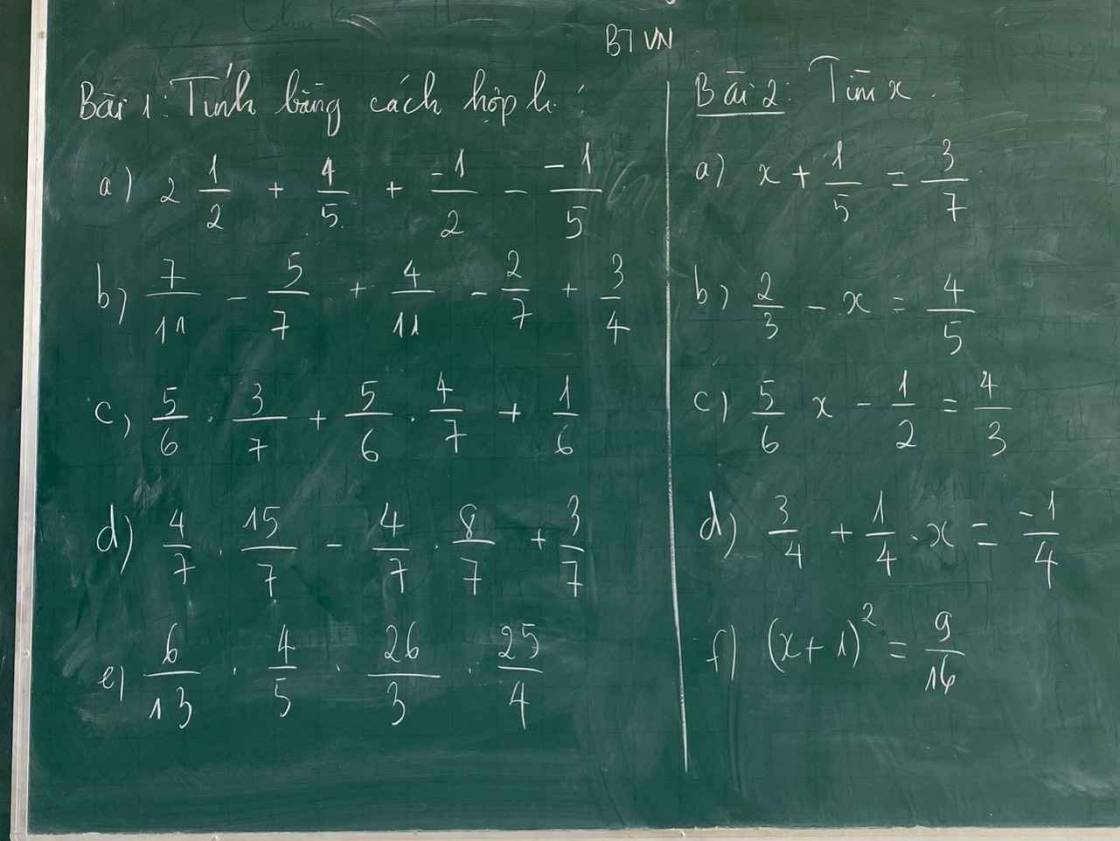 BTVN
Bài 1: Tính bằng cách hợp lí:
a) 2 1/2 + 4/5 + -1/2 - -1/5
b) 7/11 - 5/7 + 4/11 - 2/7 + 3/4
c) 5/6 . 3/7 + 5/6 . 4/7 + 1/6
d) 4/7 . 15/7 - 4/7 . 8/7 + 3/7
e) 6/13 . 4/5 . 26/3 . 25/4
Bài 2: Tìm x.
a) x + 1/5 = 3/7
b) 2/3 - x = 4/5
c) 5/6 x - 1/2 = 4/3
d) 3/4 + 1/4 . x = -1/4
f) (x+1)² = 9/16